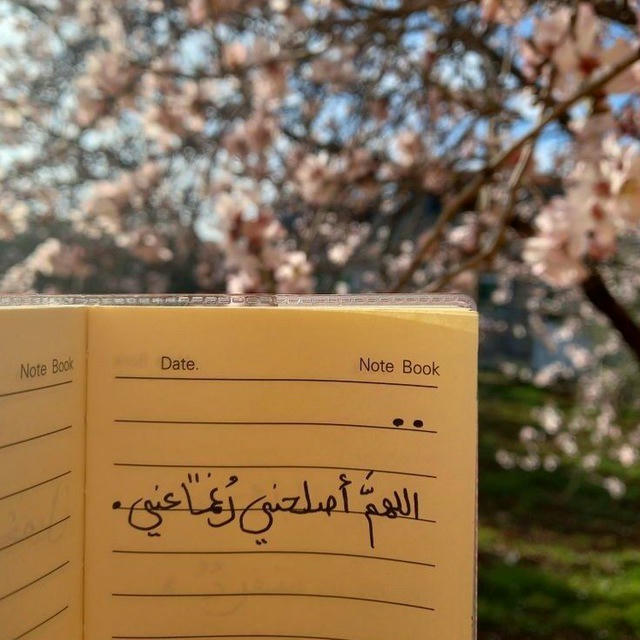 Note Book
Date. Note Book
..
اللهمَّ أصلحني رُغمًا عني.